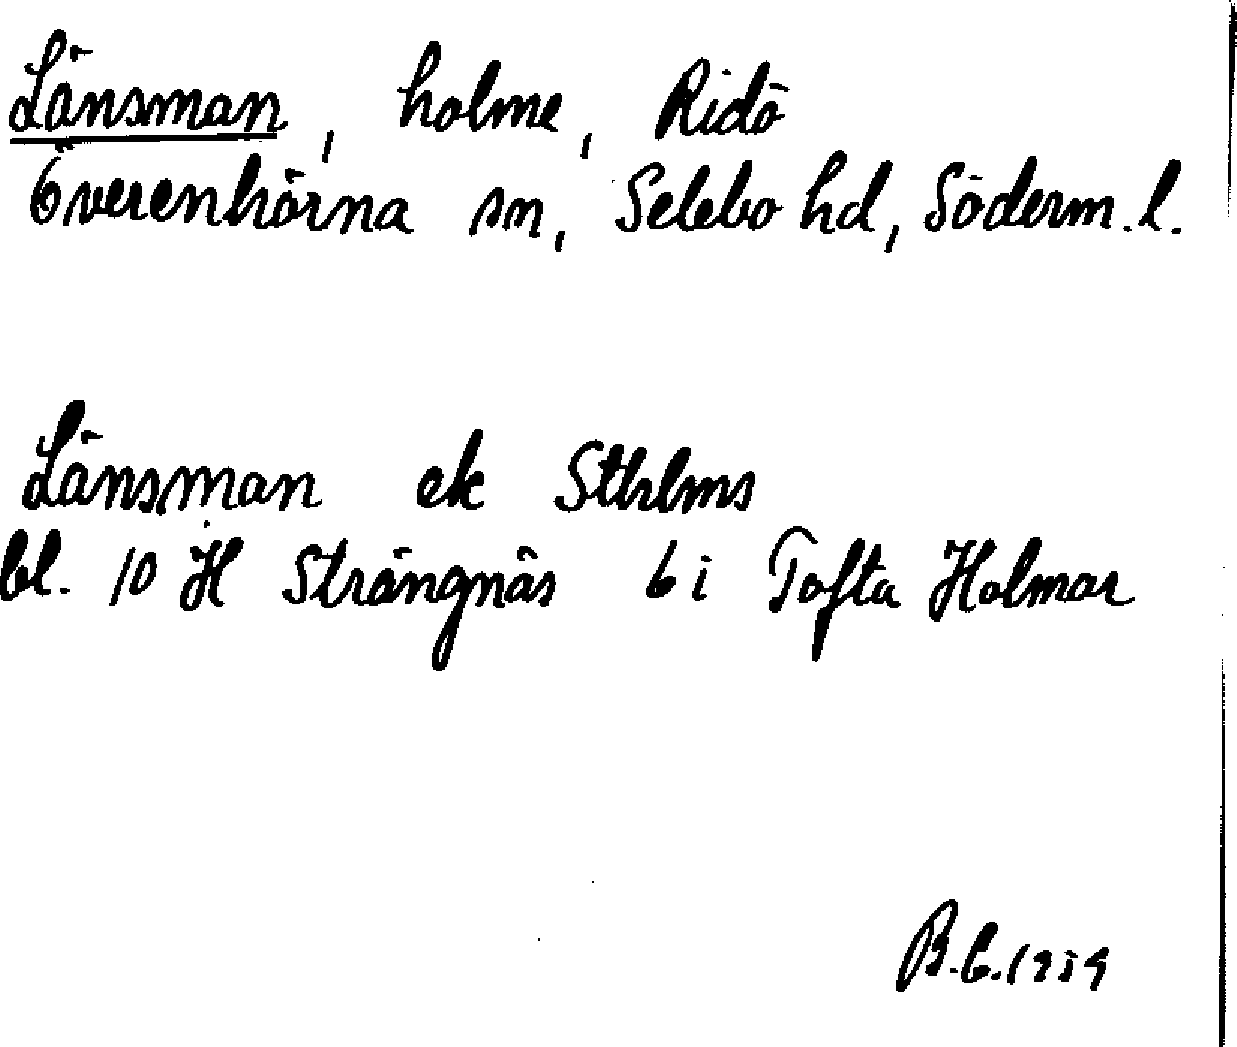 Länsman, holme, Ridö
Överenhörna sn, Selebo hd, Söderm. l.
Länsman ek Sthlms
bl. 10 H Strängnäs 6 i Tofta Holmar
B.C. 1939